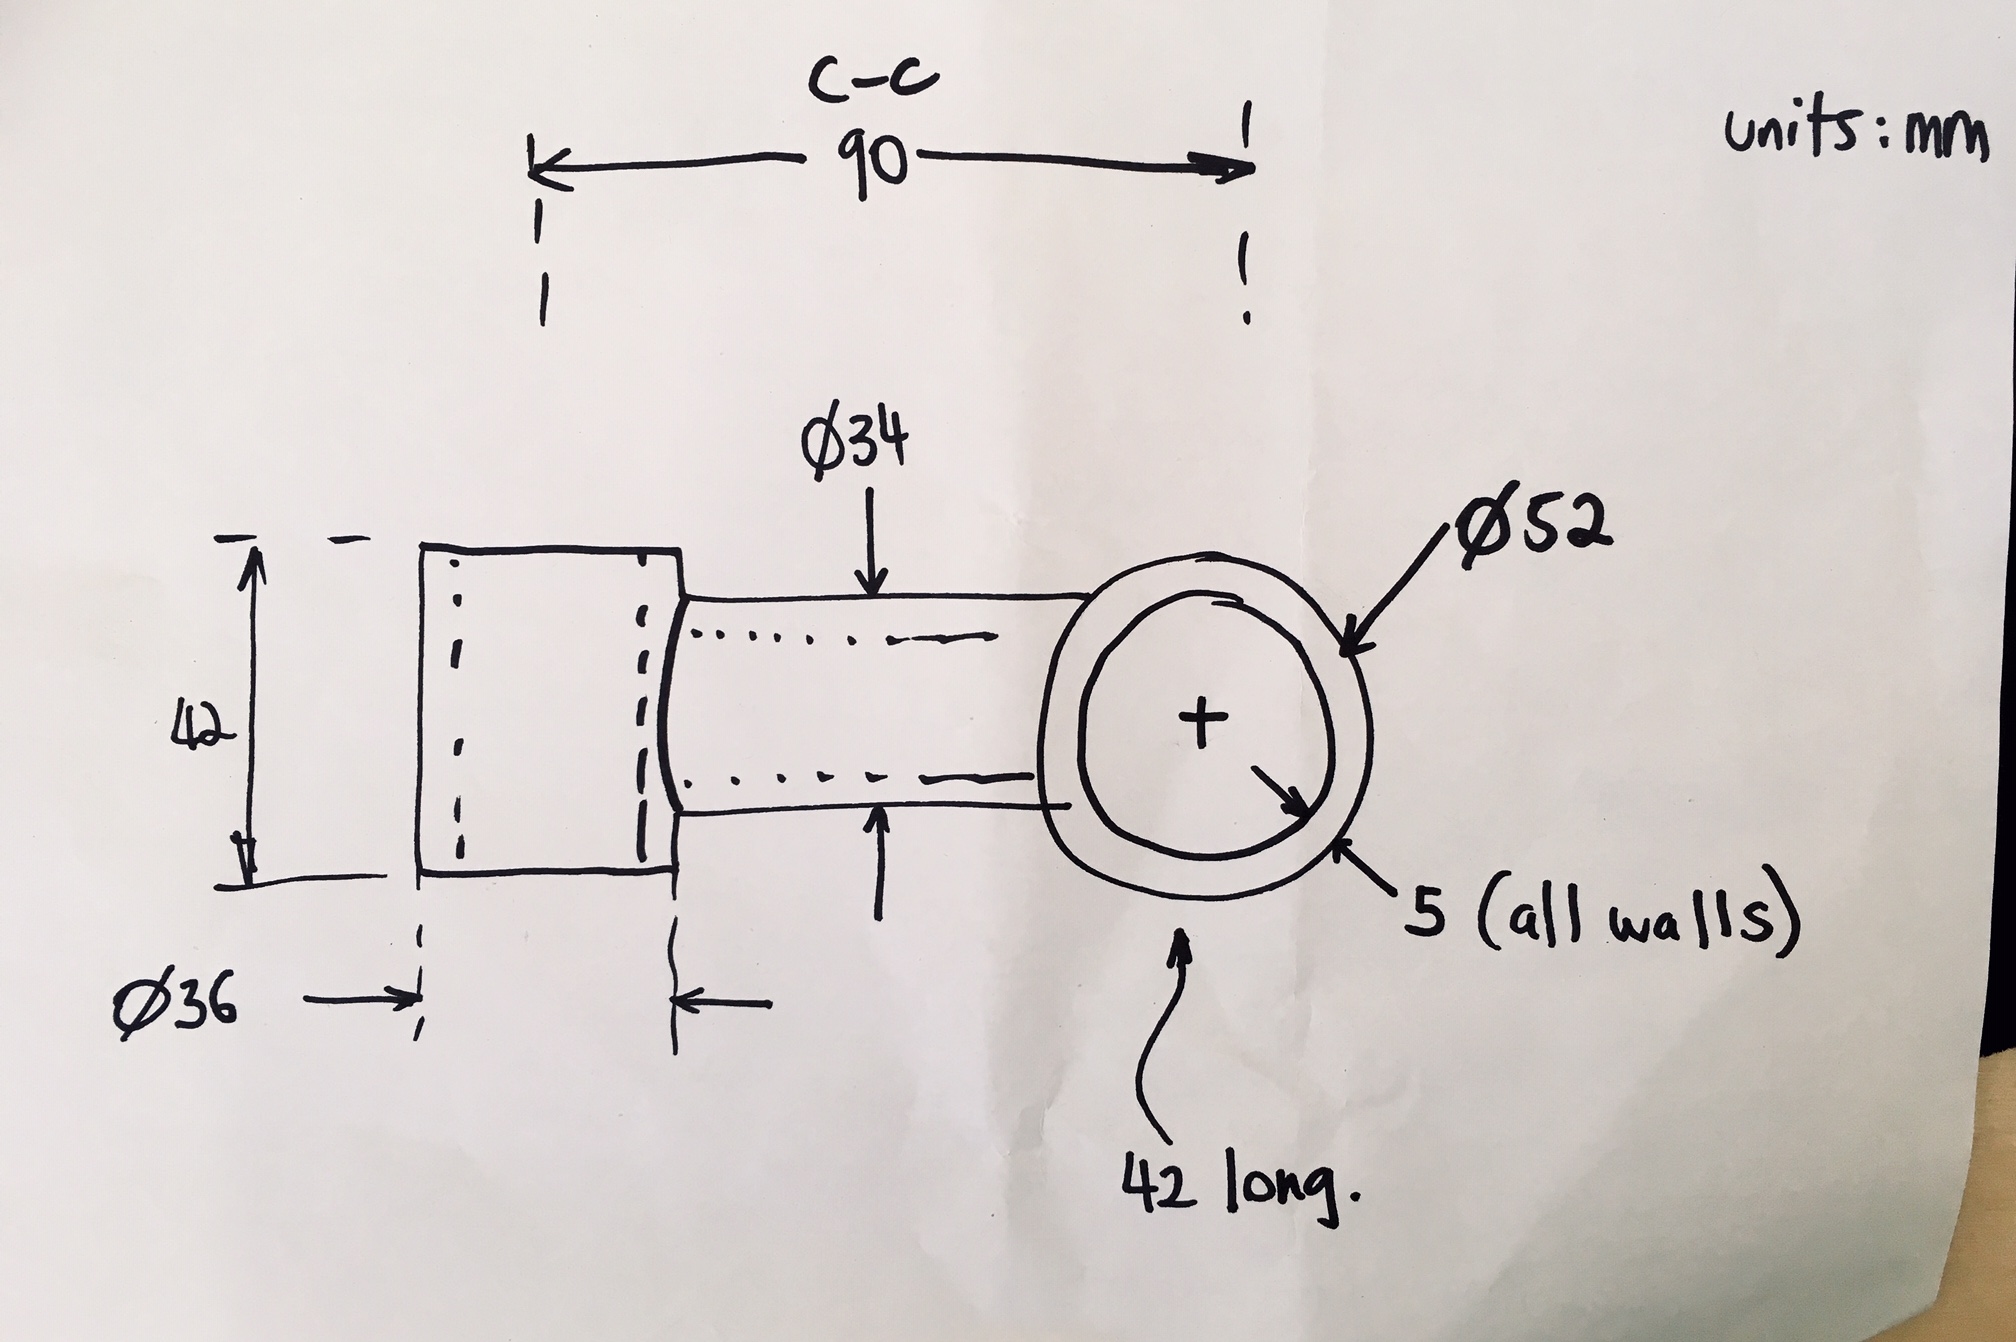 C-C
90
units: mm
Ø34
Ø52
42
5 (all walls)
Ø36
42 long.